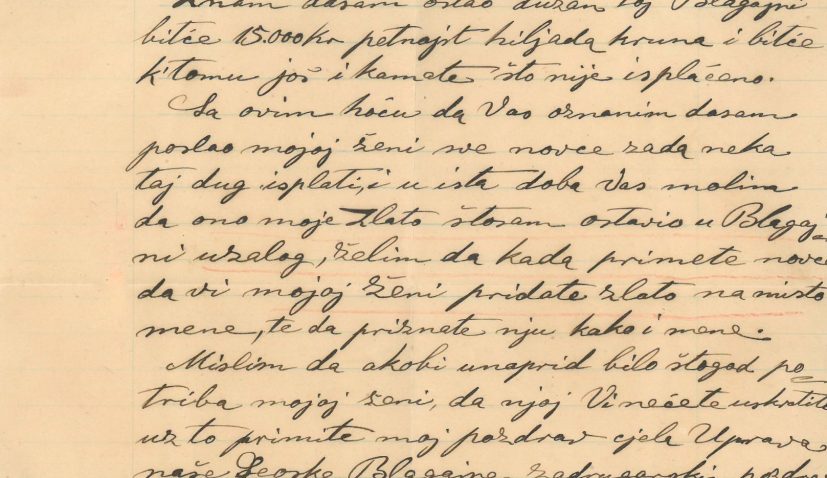 Znam dasam ostao dužan toj Blagajni
bitće 15.000 Kr petnajst hiljada kruna i bitće
k'tomu još i kamate što nije isplaćeno.
Sa ovim hoću da Vas oznanim dasam
poslao mojoj ženi sve novce zada neka
taj dug isplati, i u ista doba Vas molim
da ono moje Zlato štosam ostavio u Blagaj-
ni uzalog, želim da kada primete novce
da vi mojoj Ženi pridate zlato na misto
mene, te da priznate nju kako i mene.
Mislim da akobi unaprid bilo štogod po-
triba mojoj ženi, da njoj Vi nećete uskratiti
uz to primite moj pozdrav cjela Uprava
naše Seoske Blagajne zadrugarski